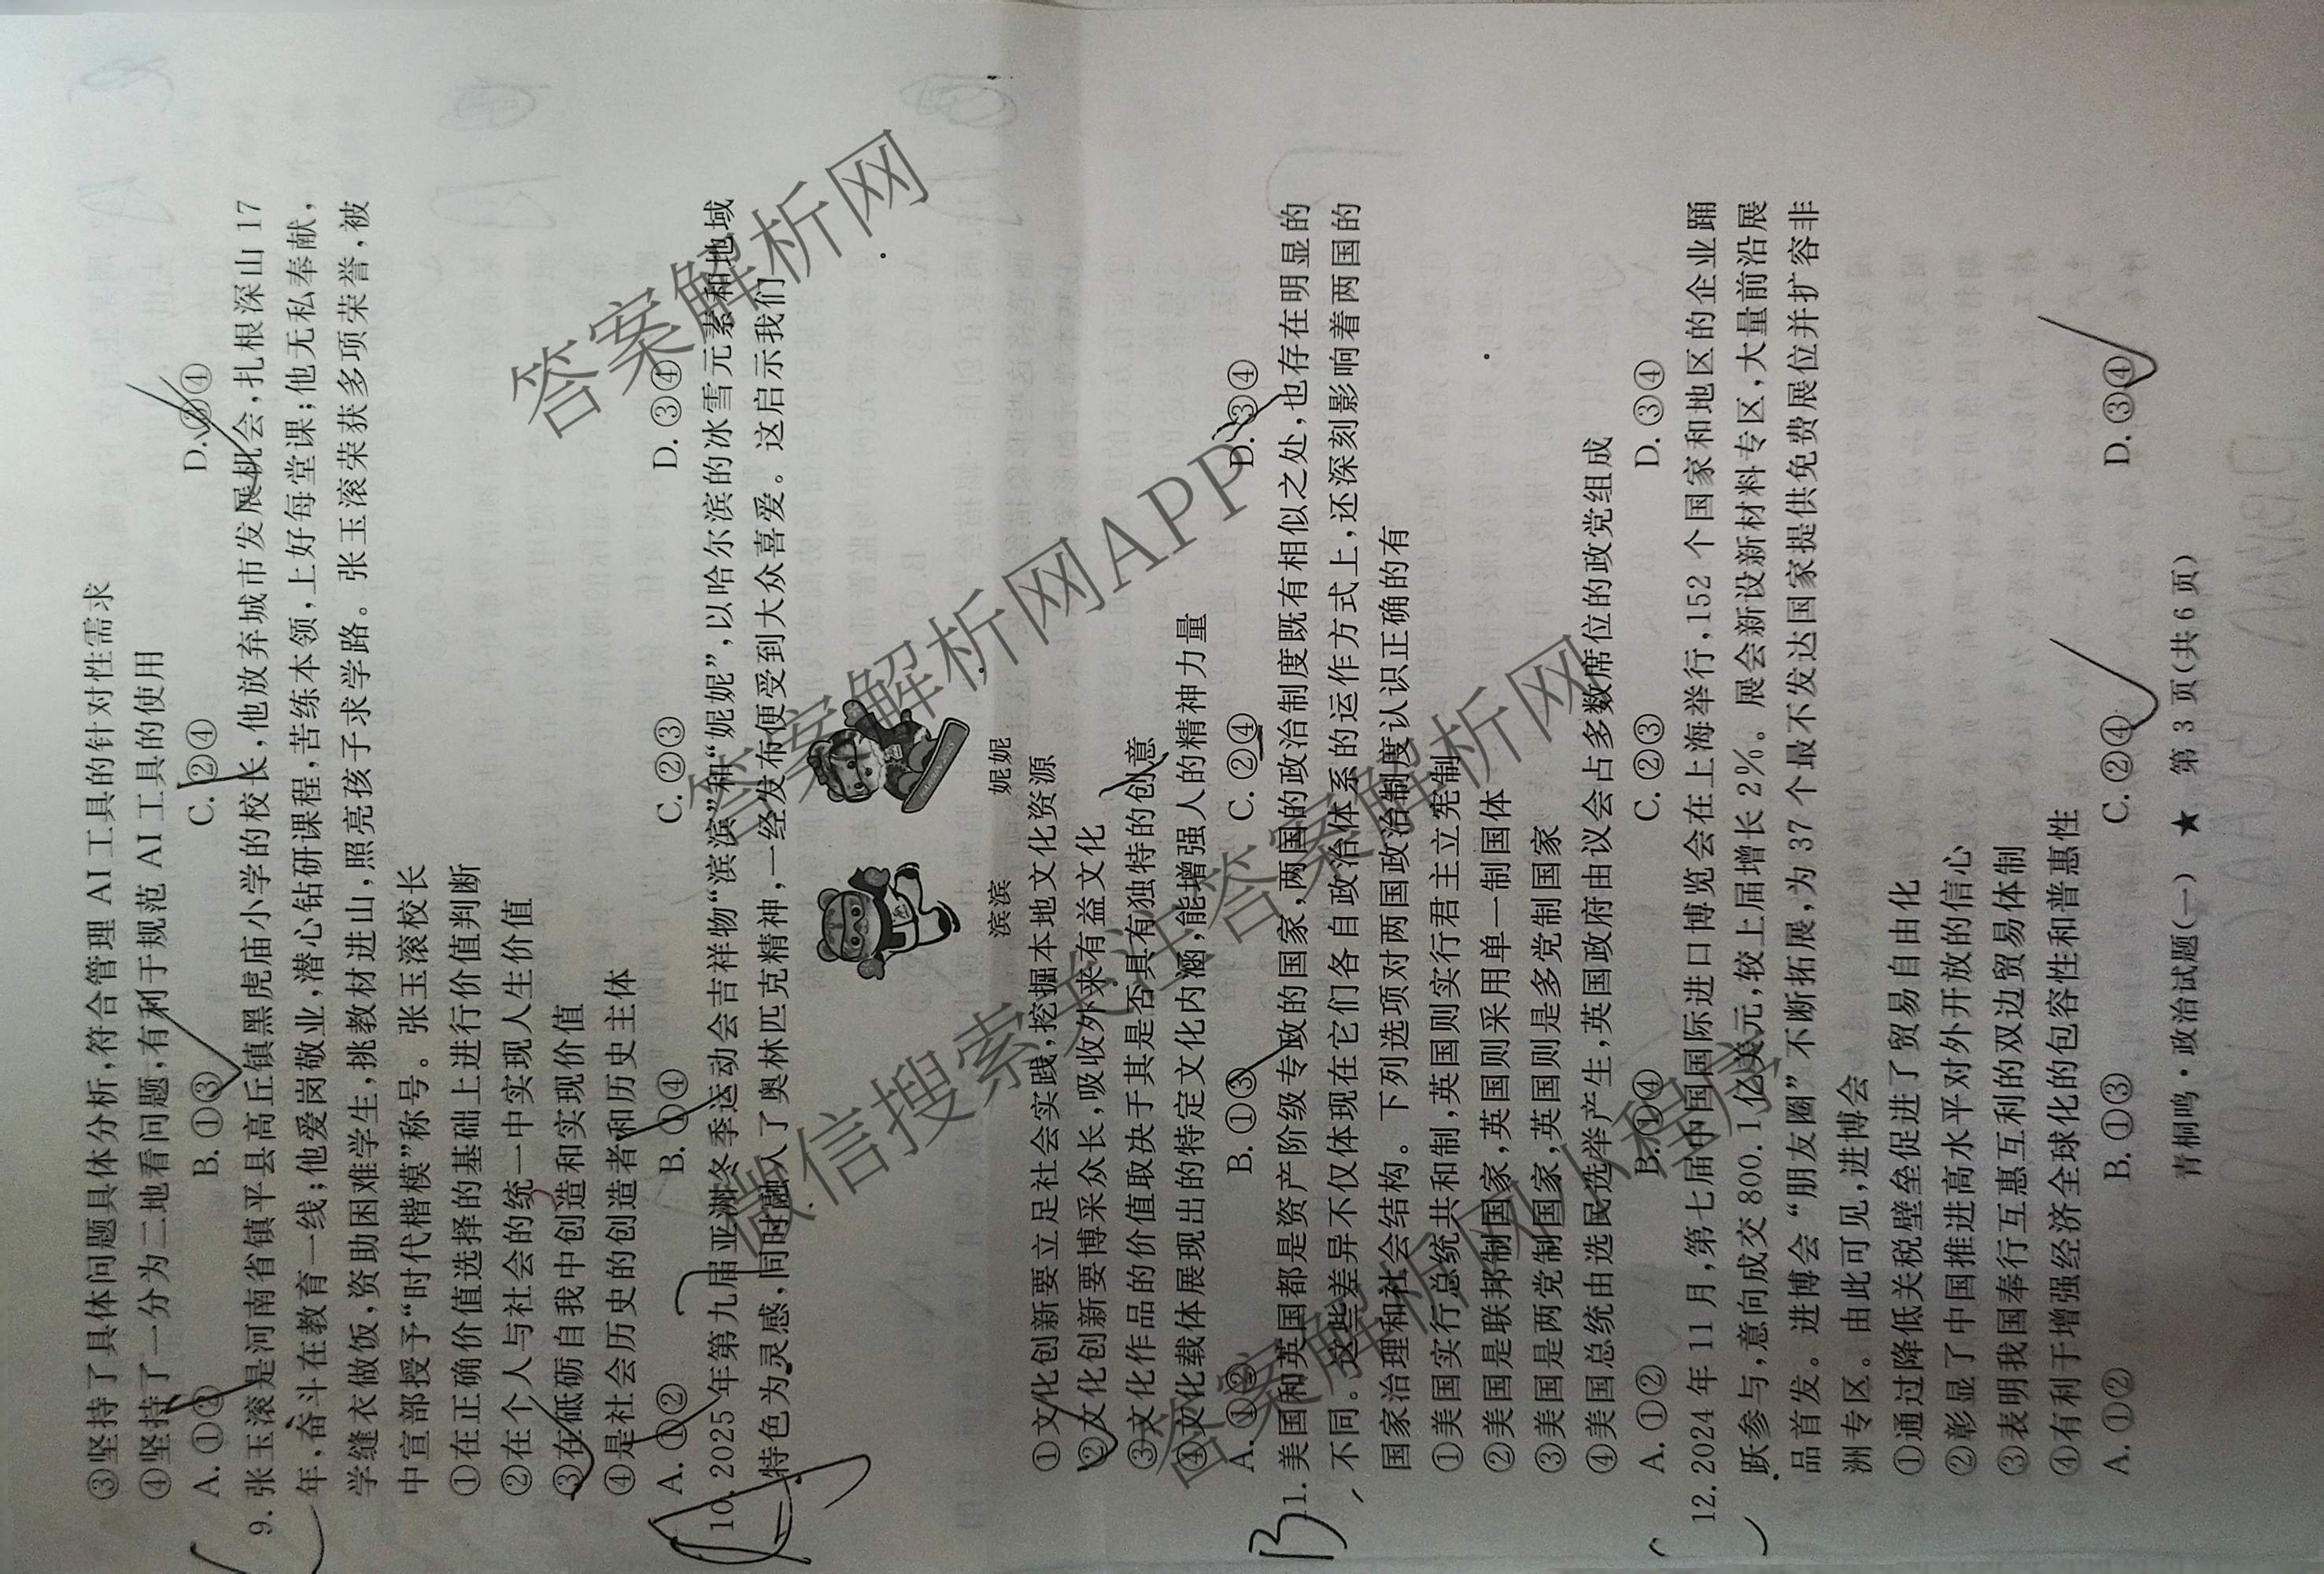 ③坚持了具体问题具体分析,符合管理 AI 工具的针对性需求
④坚持了一分为二地看问题,有利于规范 AI 工具的使用
A. ①② B. ①③ C. ②④ D. ③④
9. 张玉滚是河南省镇平县高丘镇黑虎庙小学的校长,他放弃城市发展机会,扎根深山 17
年,奋斗在教育一线;他爱岗敬业,潜心钻研课程,苦练本领,上好每堂课;他无私奉献,
学缝衣做饭,资助困难学生,挑教材进山,照亮孩子求学路。张玉滚荣获多项荣誉,被
中宣部授予“时代楷模”称号。张玉滚校长
①在正确价值选择的基础上进行价值判断
②在个人与社会的统一中实现人生价值
③在砥砺自我中创造和实现价值
④是社会历史的创造者和历史主体
A. ①② B. ①④ C. ②③ D. ③④
10. 2025 年第九届亚洲冬季运动会吉祥物“滨滨”和“妮妮”,以哈尔滨的冰雪元素和地域
特色为灵感,同时融入了奥林匹克精神,一经发布便受到大众喜爱。这启示我们
滨滨 妮妮
①文化创新要立足社会实践,挖掘本地文化资源
②文化创新要博采众长,吸收外来有益文化
③文化作品的价值取决于其是否具有独特的创意
④文化载体展现出的特定文化内涵,能增强人的精神力量
A. ①② B. ①③ C. ②④ D. ③④
B
11. 美国和英国都是资产阶级专政的国家,两国的政治制度既有相似之处,也存在明显的
不同。这些差异不仅体现在它们各自政治体系的运作方式上,还深刻影响着两国的
国家治理和社会结构。下列选项对两国政治制度认识正确的有
①美国实行总统共和制,英国则实行君主立宪制
②美国是联邦制国家,英国则采用单一制国体
③美国是两党制国家,英国则是多党制国家
④美国总统由选民选举产生,英国政府由议会占多数席位的政党组成
A. ①② B. ①④ C. ②③ D. ③④
12. 2024 年 11 月,第七届中国国际进口博览会在上海举行,152 个国家和地区的企业踊
跃参与,意向成交 800. 1 亿美元,较上届增长 2%。展会新设新材料专区,大量前沿展
品首发。进博会“朋友圈”不断拓展,为 37 个最不发达国家提供免费展位并扩容非
洲专区。由此可见,进博会
①通过降低关税壁垒促进了贸易自由化
②彰显了中国推进高水平对外开放的信心
③表明我国奉行互惠互利的双边贸易体制
④有利于增强经济全球化的包容性和普惠性
A. ①② B. ①③ C. ②④ D. ③④
青桐鸣·政治试题(一) ★ 第 3 页(共 6 页)
答案解析网
答案解析网APP
答案解析网